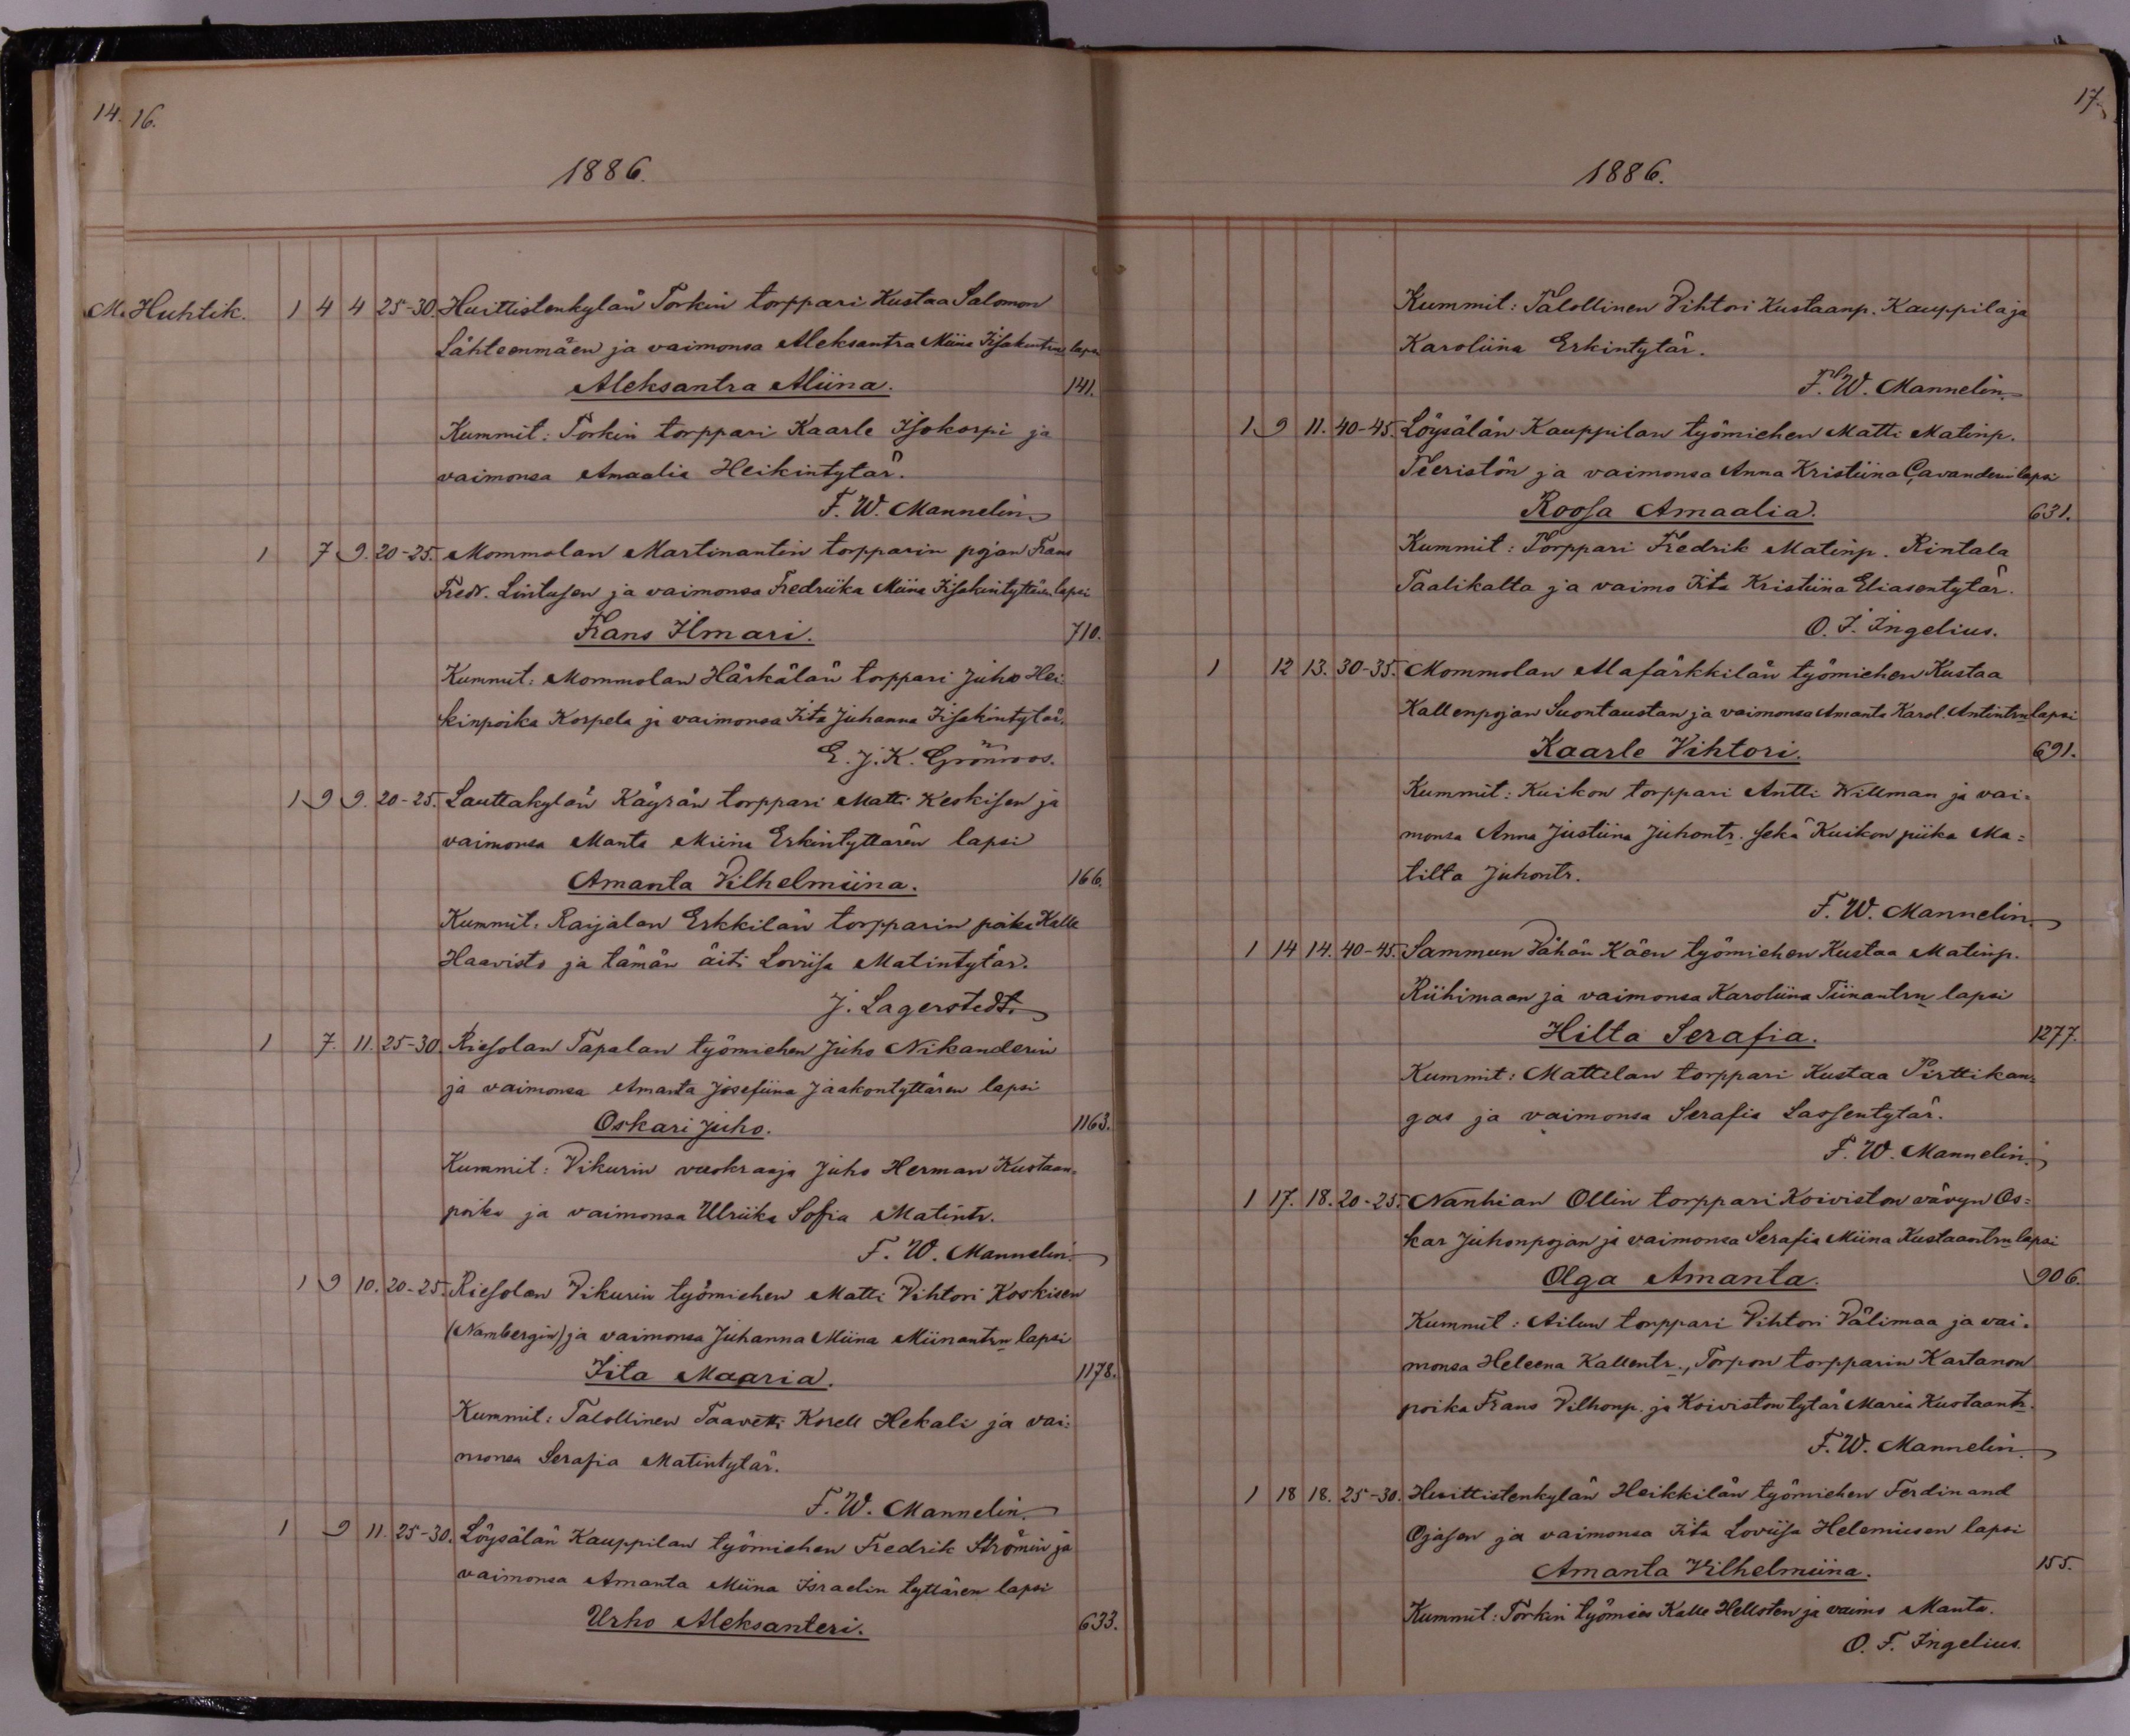 14. 16.
1886.
M. Huhtik. 1 4 4 25-30. Huittistenkylän Torkin torppari Kustaa Salomon
Lähteenmäen ja vaimonsa Aleksantra Miina Iisakintrn lapsi
Aleksantra Aliina. 141.
Kummit: Torkin torppari Kaarle Isokorpi ja
vaimonsa Amaalia Heikintytär.
F. W. Mannelin.
1 7 9. 20-25. Mommolan Martinantin torpparin pojan Frans
Fredr. Lintusen ja vaimonsa Fredriika Miina Iisakintyttären lapsi
Frans Ilmari. 710.
Kummit: Mommolan Härkälän torppari Juho Hei-
kinpoika Korpela ja vaimonsa Iita Juhanna Iisakintytär.
E. J. K. Grönroos.
1 9 9. 20-25. Lauttakylän Käyrän torppari Matti Keskisen ja
vaimonsa Manta Miina Erkintyttären lapsi
Amanta Vilhelmiina. 166.
Kummit: Raijalan Erkkilän torpparin poika Kalle
Haavisto ja tämän äiti Loviisa Matintytär.
J. Lagerstedt.
1 7. 11. 25-30. Riesolan Tapalan työmiehen Juho Nikanderin
ja vaimonsa Amanta Josefiina Jaakontyttären lapsi
Oskari Juho. 1163.
Kummit: Vikurin vuokraaja Juho Herman Kustaan-
poika ja vaimonsa Ulriika Sofia Matintr.
F. W. Mannelin.
1 9 10. 20-25. Riesolan Vikurin työmiehen Matti Vihtori Koskisen
(Nambergin) ja vaimonsa Juhanna Miina Miinantrn lapsi
Iita Maaria. 1178.
Kummit: Talollinen Taavetti Korell Hekali ja vai-
monsa Serafia Matintytär.
F. W. Mannelin.
1 9 11. 25-30. Löysälän Kauppilan työmiehen Fredrik Strömin ja
vaimonsa Amanta Miina Israelin tyttären lapsi
Urho Aleksanteri. 633.
17.
1886.
Kummit: Talollinen Vihtori Kustaanp. Kauppila ja
Karoliina Erkintytär.
F. W. Mannelin.
1 9 11. 40-45. Löysälän Kauppilan työmiehen Matti Matinp.
Teeristön ja vaimonsa Anna Kristiina Cavanderin lapsi
Roosa Amaalia. 631.
Kummit: Torppari Fredrik Matinp. Rintala
Taalikalta ja vaimo Iita Kristiina Eliasentytär.
O. F. Ingelius.
1 12 13. 30-35. Mommolan Alafärkkilän työmiehen Kustaa
Kallenpojan Suontaustan ja vaimonsa Amanta Karol. Antintrn lapsi
Kaarle Vihtori. 691.
Kummit: Kuikon torppari Antti Willman ja vai-
monsa Anna Justiina Juhontr. sekä Kuikon piika Ma-
tilta Juhontr.
F. W. Mannelin.
1 14 14. 40-45. Sammun Vähän Käen työmiehen Kustaa Matinp.
Riihimaan ja vaimonsa Karoliina Tiinantrn lapsi
Hilta Serafia. 1277.
Kummit: Mattilan torppari Kustaa Pirttikan-
gas ja vaimonsa Serafia Lassentytär.
F. W. Mannelin.
1 17. 18. 20-25. Nanhian Ollin torppari Koiviston vävyn Os-
kar Juhonpojan ja vaimonsa Serafia Miina Kustaantrn lapsi
Olga Amanta. 906.
Kummit: Ailun torppari Vihtori Välimaa ja vai-
monsa Heleena Kallentr., Torpon torpparin Kartanon
poika Frans Vilhonp. ja Koiviston tytär Maria Kustaantr.
F. W. Mannelin.
1 18 18. 25-30. Huittistenkylän Heikkilän työmiehen Ferdinand
Ojasen ja vaimonsa Iita Loviisa Heleniusen lapsi
Amanta Vilhelmiina. 155.
Kummit: Torkin työmies Kalle Hellsten ja vaimo Manta.
O. F. Ingelius.